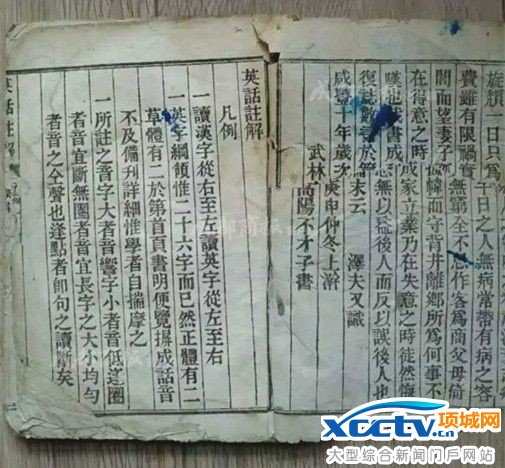 旋頹一日只爲午日之人無病常帶有病之容
費雖有限禍實無窮全不思作客爲商父母倚
閭而望妻子幃而守背井離鄉所爲何事不
在得意之時成家立業乃在失意之時徒然悔
嘆也茲書成恐無以益後人而反以誤後人也
復誌數言於篇末云 澤夫又識
咸豐十年歲次庚申仲冬上澣
武林高陽不才子書
英話註解
凡例
一讀漢字從右至左讀英字從左至右
一英字綱領惟二十六字而已然正體有二
草體有二於第首頁書明便覽摒成話音
不及備刊詳細惟學者自揣摩之
一所註之音字大者音響字小者音低逢圈
者音宜斷無圈者音宜長字之大小均勻
者音之全聲也逢點者即句之讀斷矣
英話註解
xcctv.cn 项城网
大型综合新闻门户网站